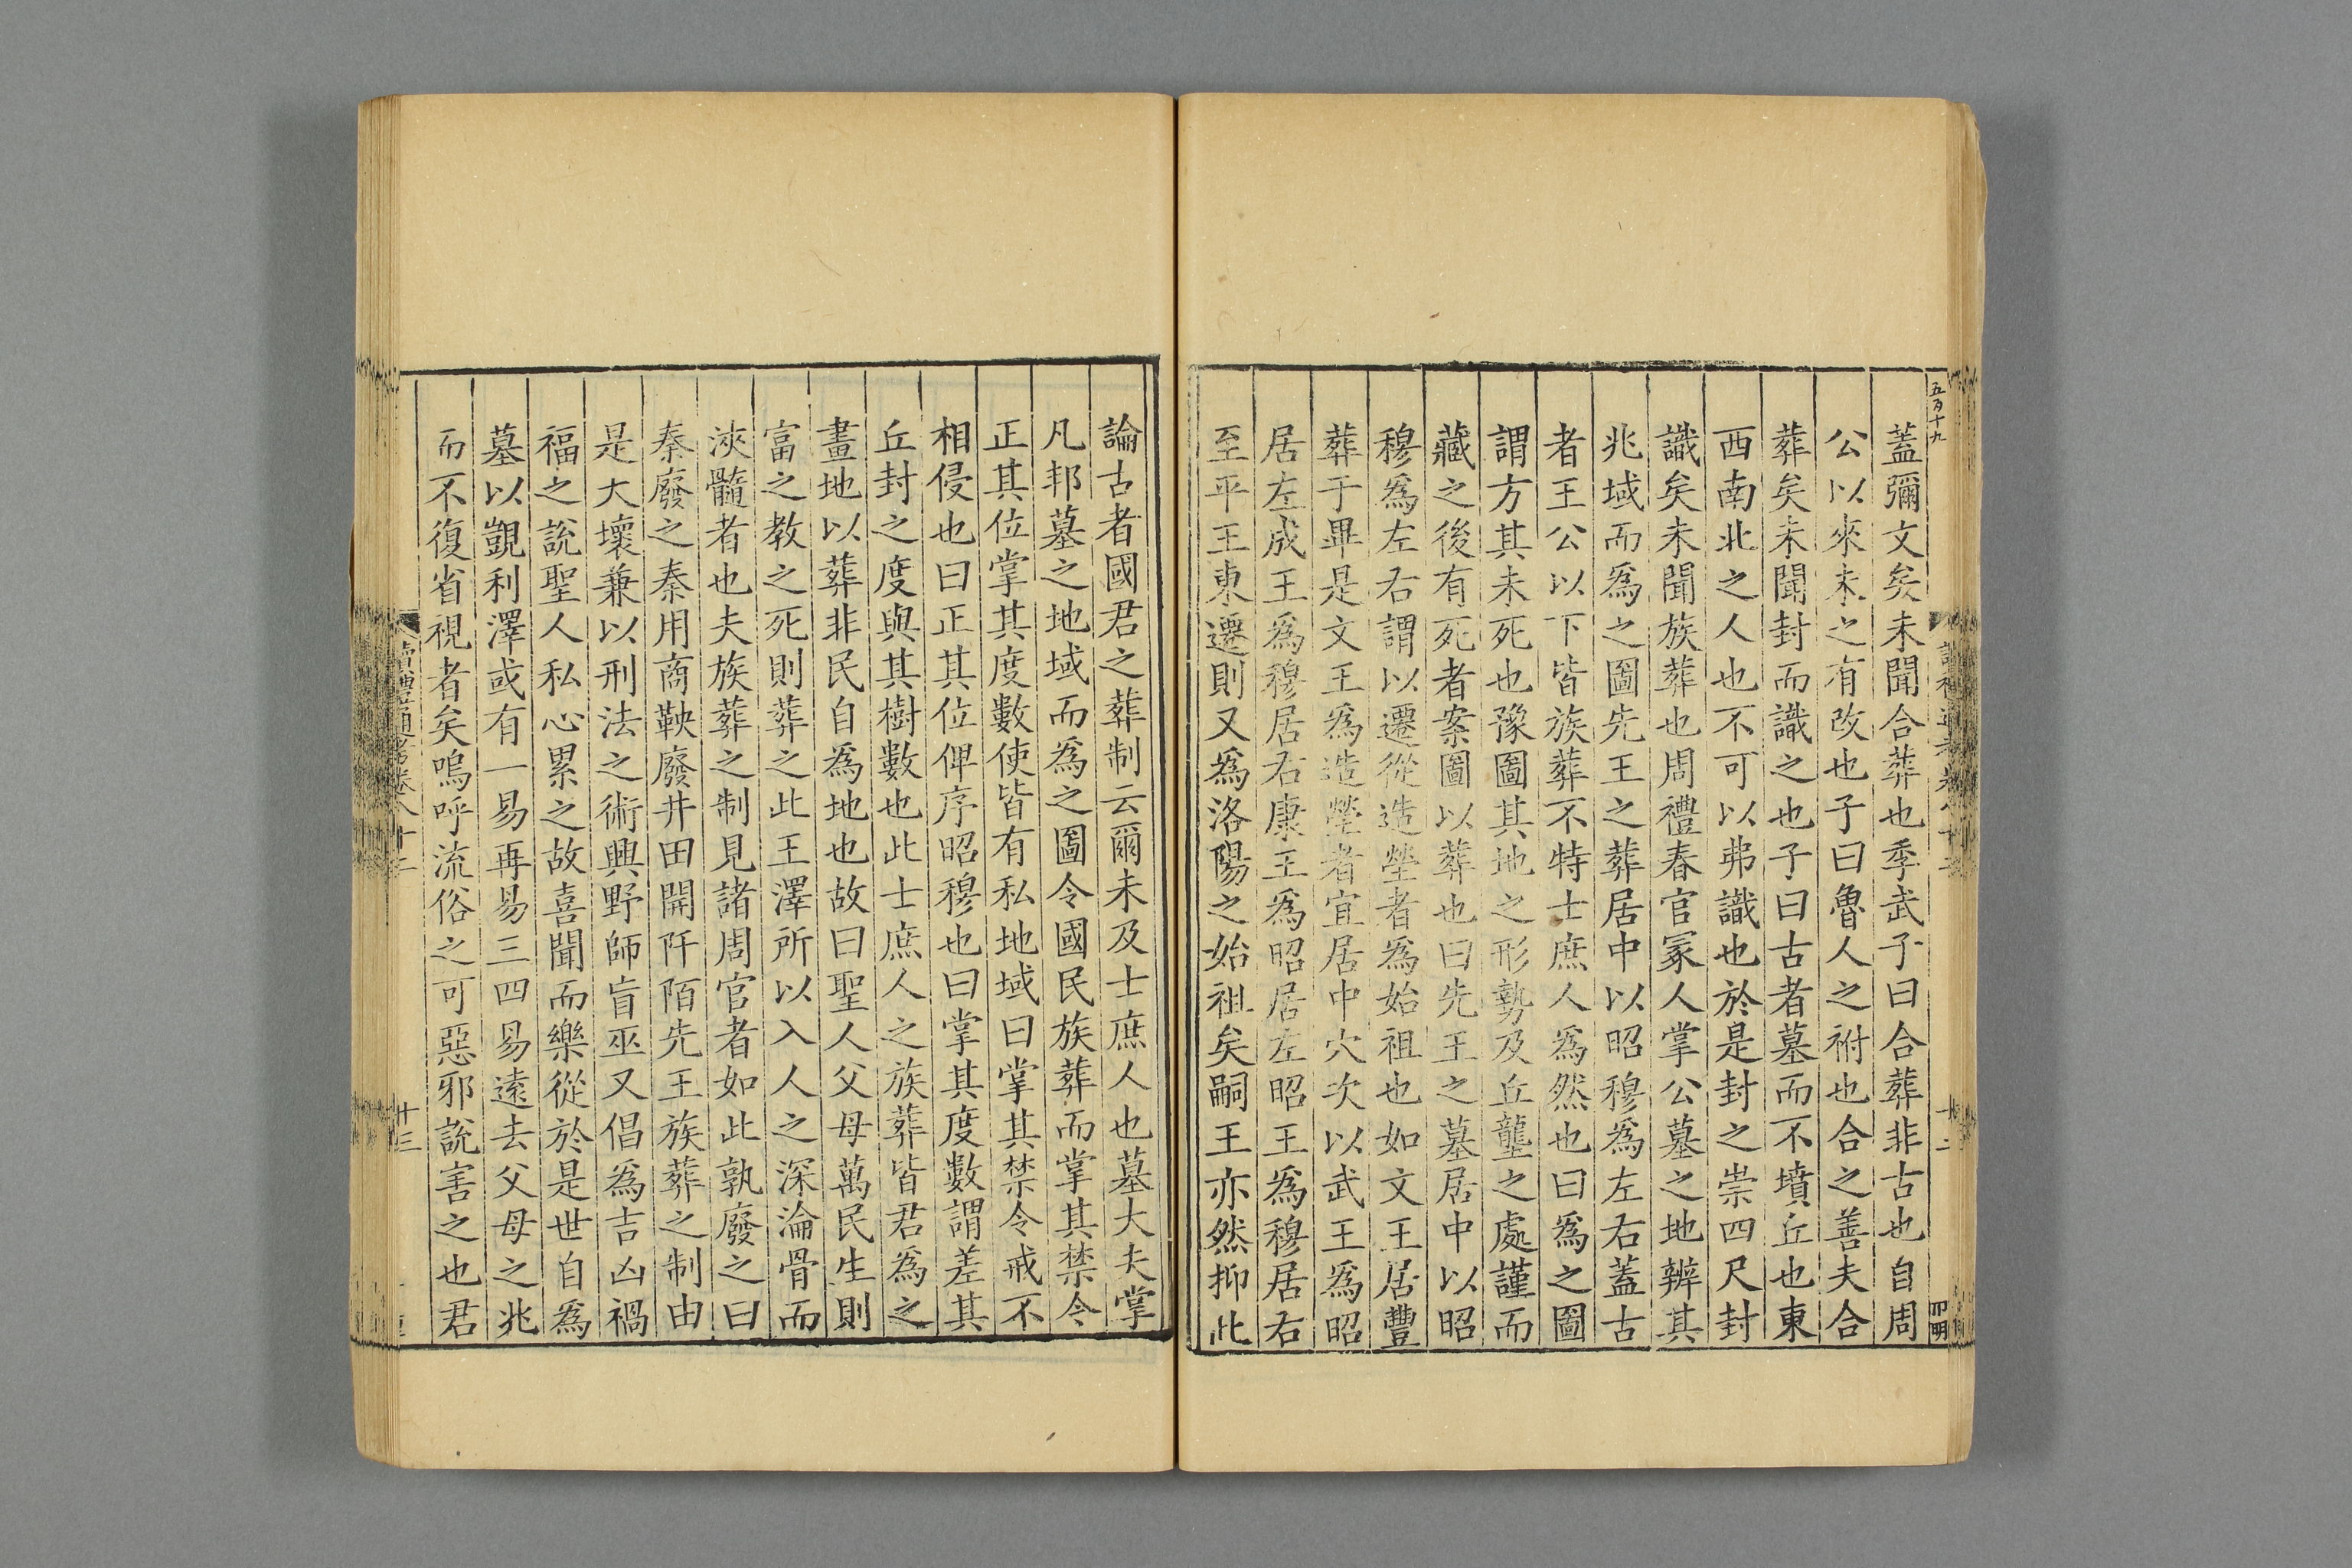 五百十九
蓋彌文矣未聞合葬也季武子曰合葬非古也自周
公以來未之有改也子曰魯人之祔也合之善夫合
葬矣未聞封而識之也子曰古者墓而不墳丘也東
西南北之人也不可以弗識也於是封之崇四尺封
識矣未聞族葬也周禮春官冢人掌公墓之地辨其
兆域而爲之圖先王之葬居中以昭穆爲左右蓋古
者王公以下皆族葬不特士庶人爲然也曰爲之圖
謂方其未死也豫圖其地之形勢及丘壟之處謹而
藏之後有死者案圖以葬也曰先王之墓居中以昭
穆爲左右謂以遷從造塋者爲始祖也如文王居豐
葬于畢是文王爲造塋者宜居中穴次以武王爲昭
居左成王爲穆居右康王爲昭居左昭王爲穆居右
至平王東遷則又爲洛陽之始祖矣嗣王亦然抑此
論古者國君之葬制云爾未及士庶人也墓大夫掌
凡邦墓之地域而爲之圖令國民族葬而掌其禁令
正其位掌其度數使皆有私地域曰掌其禁令戒不
相侵也曰正其位俾序昭穆也曰掌其度數謂差其
丘封之度與其樹數也此士庶人之族葬皆君爲之
畫地以葬非民自爲地也故曰聖人父母萬民生則
富之教之死則葬之此王澤所以入人之深淪骨而
浹髓者也夫族葬之制見諸周官者如此孰廢之曰
秦廢之秦用商鞅廢井田開阡陌先王族葬之制由
是大壞兼以刑法之術興野師盲巫又倡爲吉凶禍
福之說聖人私心累之故喜聞而樂從於是世自爲
墓以覬利澤或有一易再易三四易遠去父母之兆
而不復省視者矣嗚呼流俗之可惡邪說害之也君
讀禮通考卷八十二
十三